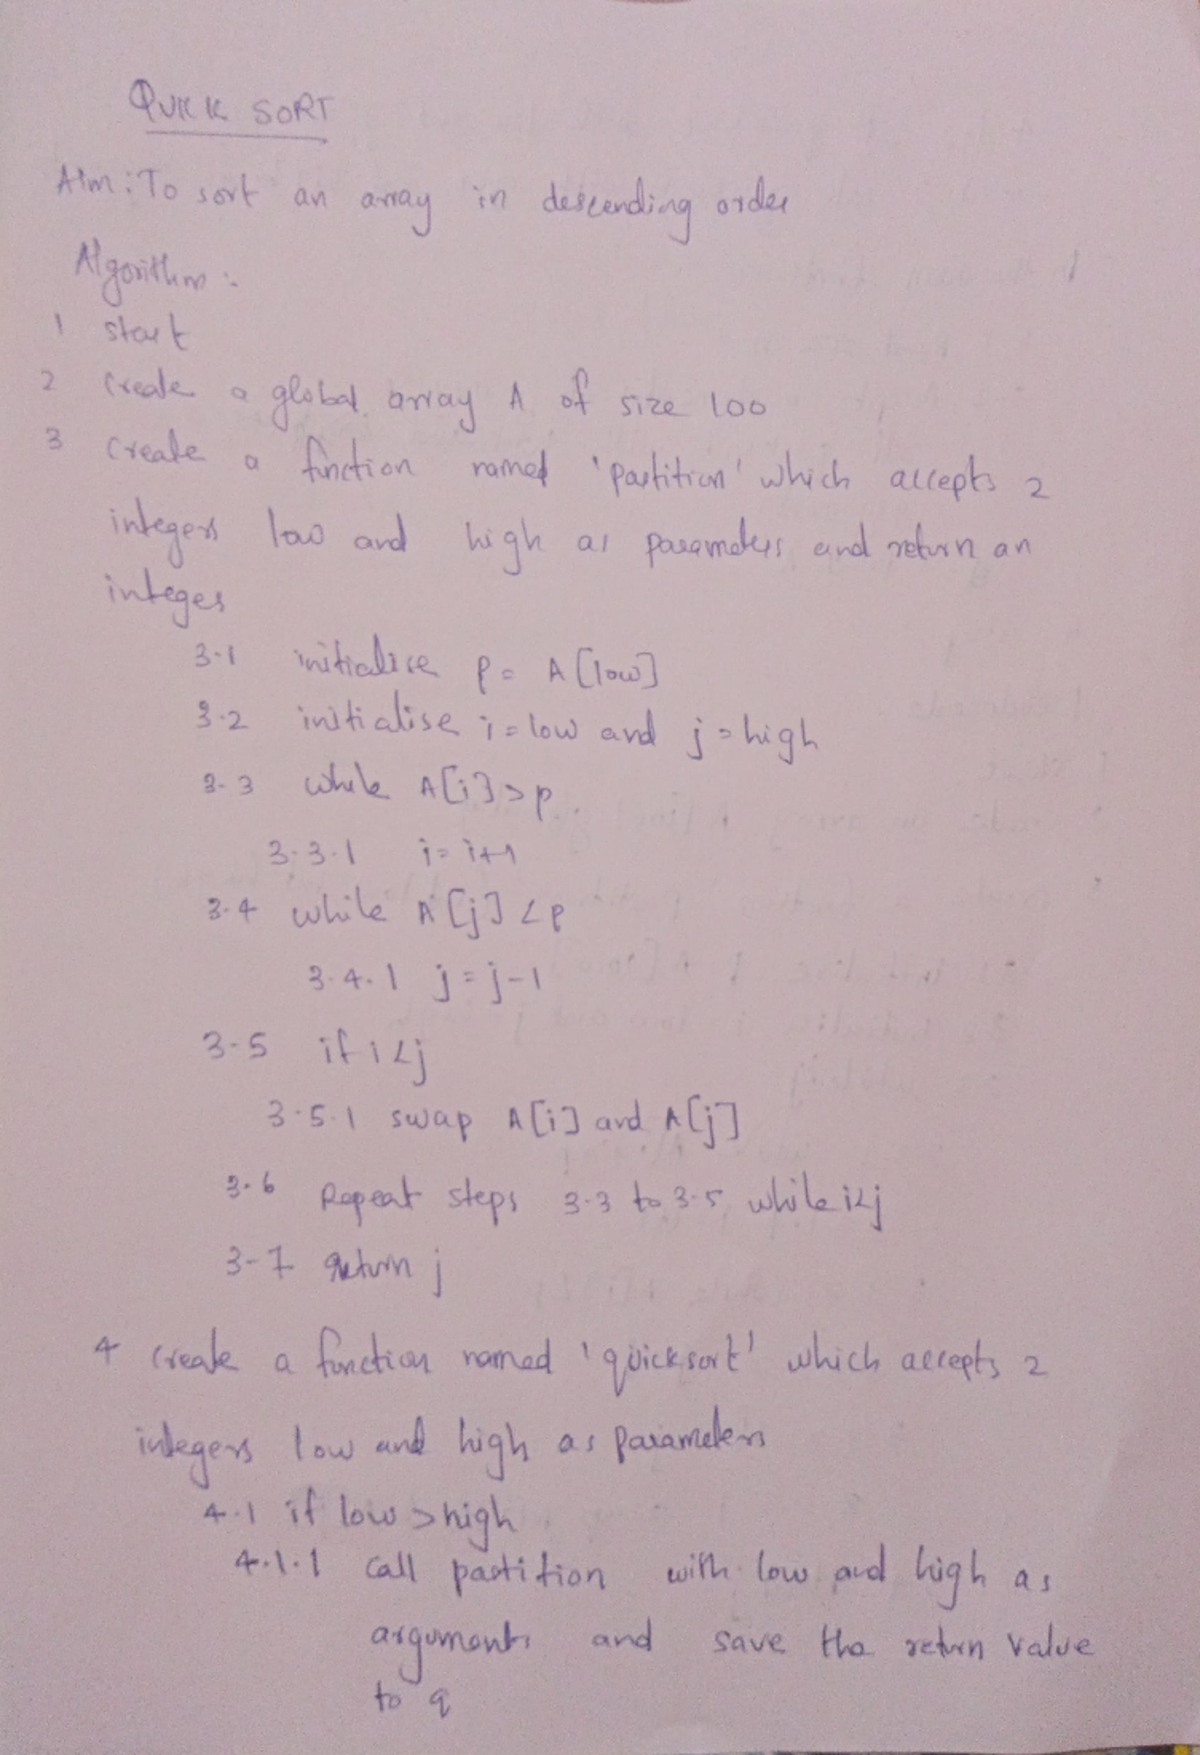 QUICK SORT
Aim: To sort an array in descending order
Algorithm:
1 start
2 create a global array A of size 100
3 create a function named 'partition' which accepts 2
integers low and high as parameters and return an
integer
3.1 initialise p = A[low]
3.2 initialise i = low and j = high
3.3 while A[i] > p
3.3.1 i = i+1
3.4 while A[j] < p
3.4.1 j = j-1
3.5 if i < j
3.5.1 swap A[i] and A[j]
3.6 Repeat steps 3.3 to 3.5 while i<j
3.7 return j
4 create a function named 'quicksort' which accepts 2
integers low and high as parameters
4.1 if low > high
4.1.1 call partition with low and high as
arguments and save the return value
to q